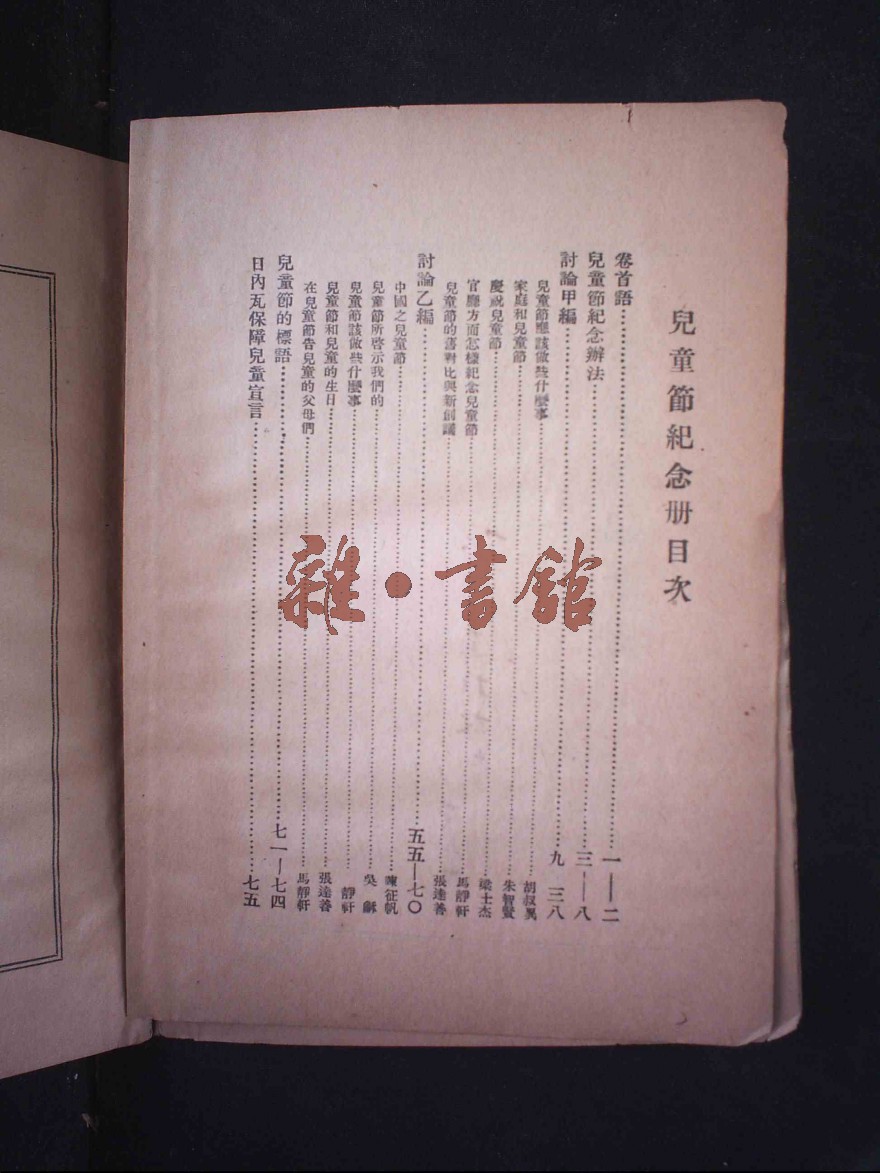 兒童節紀念册目次
卷首語一——二
兒童節紀念辦法三——八
討論甲編九 三八
兒童節應該做些什麼事胡叔異
家庭和兒童節朱智賢
慶祝兒童節梁士杰
官廳方面怎樣紀念兒童節馬靜軒
兒童節的舊對比與新創議張達善
討論乙編五五——七〇
中國之兒童節陳征帆
兒童節所啓示我們的吳
兒童節該做些什麼事靜軒
兒童節和兒童的生日張達善
在兒童節告兒童的父母們馬靜軒
兒童節的標語七一——七四
日內瓦保障兒童宣言七五
雜·書館